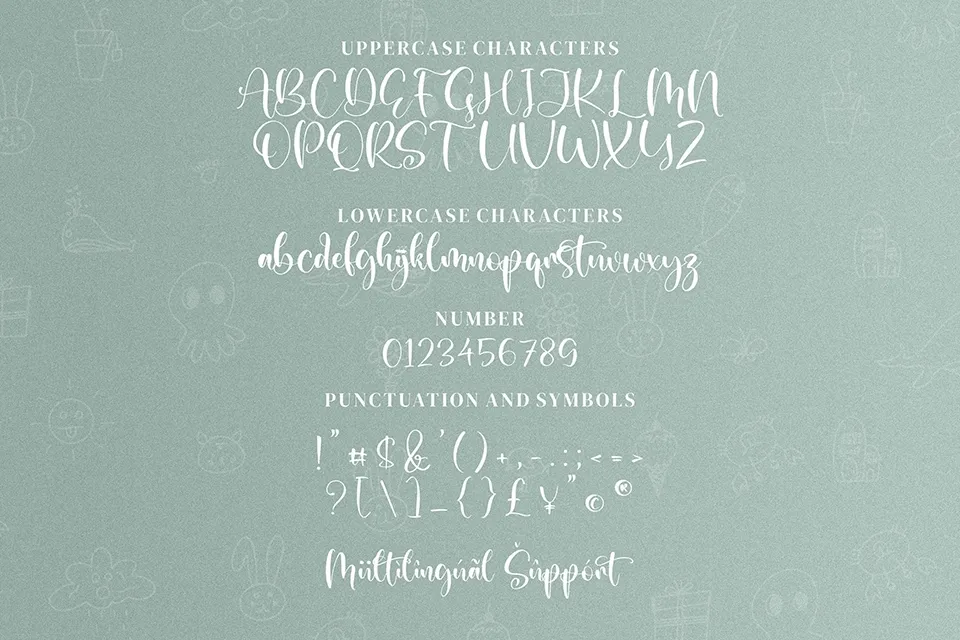 UPPERCASE CHARACTERS
ABCDEFGHIJKLMN
OPQRSTUVWXYZ
LOWERCASE CHARACTERS
abcdefghijklmnopqrstuvwxyz
NUMBER
0123456789
PUNCTUATION AND SYMBOLS
!"#$&'()+,-.:;<=>
?[\]_{}£¥"©®
Müľtilingúãl Šûppórt